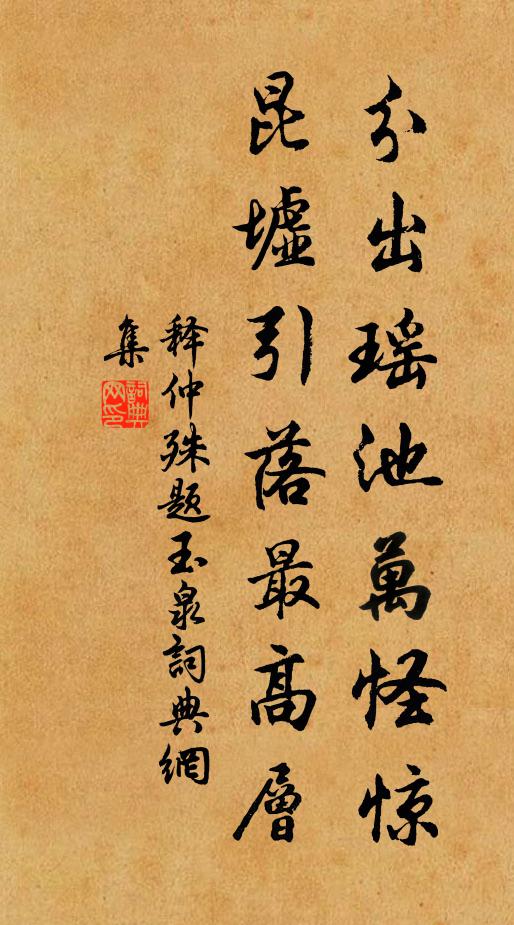 分出瑶池萬怪惊
昆墟引落最高層
释仲殊題玉泉詞典網
集
詞典网印